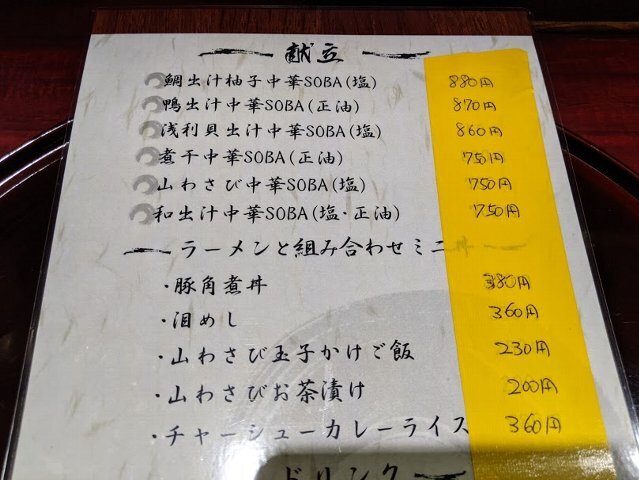 献立
鯛出汁柚子中華SOBA(塩) 880円
鴨出汁中華SOBA(正油) 870円
浅利貝出汁中華SOBA(塩) 860円
煮干中華SOBA(正油) 750円
山わさび中華SOBA(塩) 750円
和出汁中華SOBA(塩・正油) 750円
ラーメンと組み合わせミニ丼
・豚角煮丼 380円
・泪めし 360円
・山わさび玉子かけご飯 230円
・山わさびお茶漬け 200円
・チャーシューカレーライス 360円
ドリンク